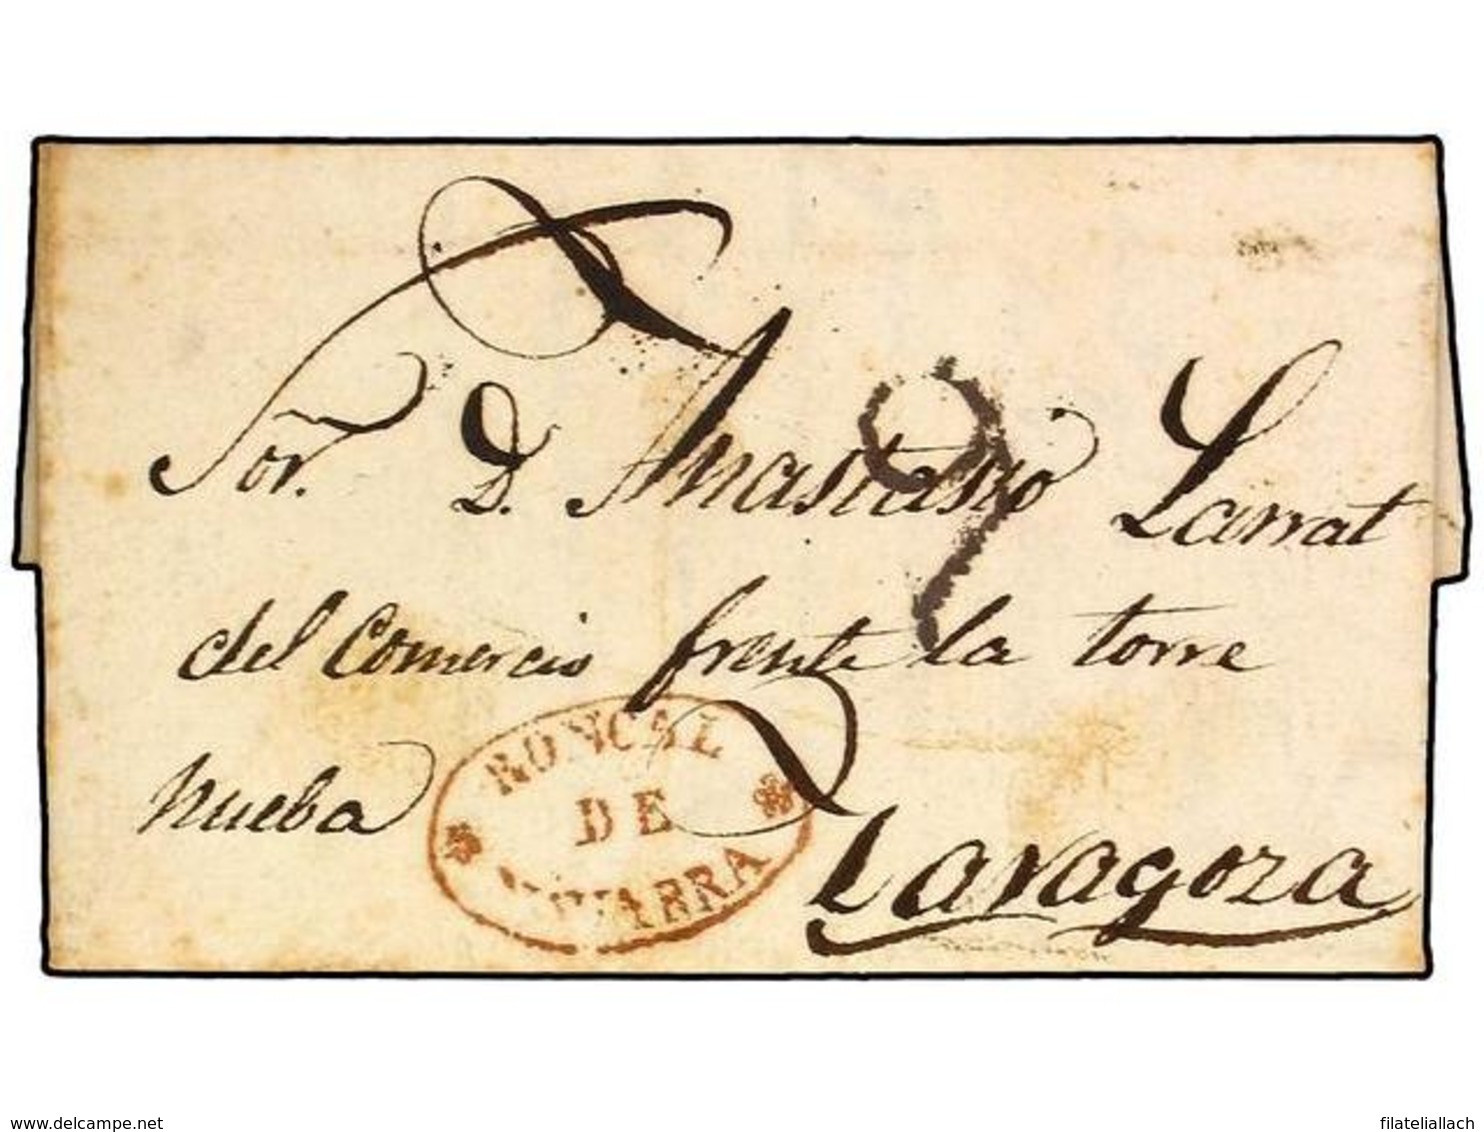 Sor. D. Anastasio Larrat
del Comercio frente la torre
nueba
Zaragoza
9
RONCAL
DE
NAVARRA
delcampe.net
filateliallach